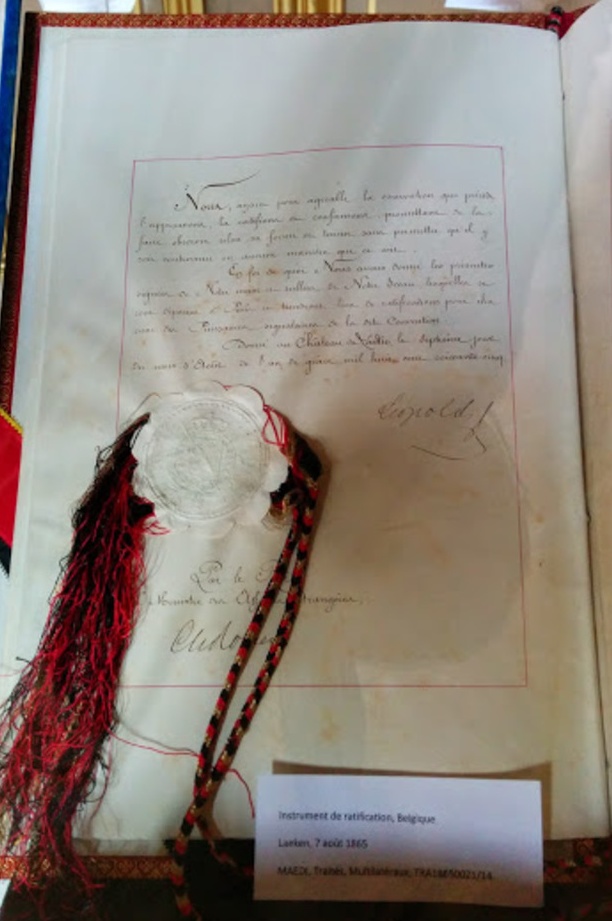 Nous, ayant pour agréable la convention qui précède,
l'approuvons, la ratifions et confirmons, promettant de la
faire observer selon sa forme et teneur, sans permettre qu'il y
soit contrevenu en aucune manière que ce soit.
En foi de quoi, Nous avons donné les présentes
signées de Notre main et scellées de Notre Sceau, lesquelles
seront déposées à Paris et tiendront lieu de ratifications pour
des Puissances signataires de la dite Convention.
Donné au Château de le septième jour
du mois d'Août de l'an de grâce mil huit cent soixante cinq
Léopold
Par le
Ministre des étrangères,
Instrument de ratification, Belgique
Laeken, 7 août 1865
MAEDI, Traités, Multilatéraux, TRA18650021/14